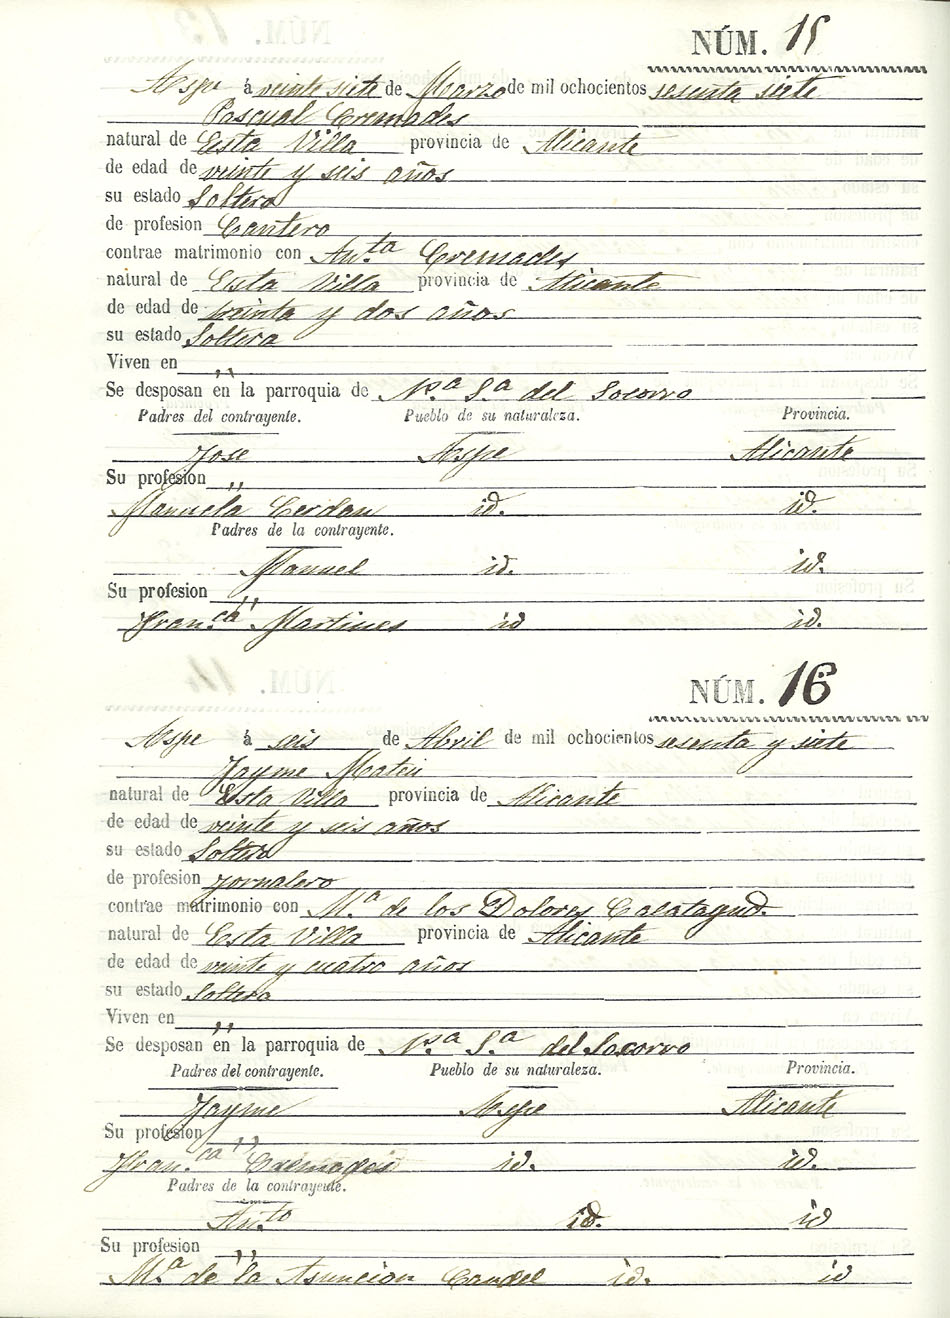 NÚM. 15
Aspe á veinte siete de Marzo de mil ochocientos sesenta siete
Pascual Cremades
natural de Esta Villa provincia de Alicante
de edad de veinte y seis años
su estado Soltero
de profesion Cantero
contrae matrimonio con An.ta Cremades
natural de Esta Villa provincia de Alicante
de edad de treinta y dos años
su estado Soltera
Viven en ,,
Se desposan en la parroquia de N.sa S.a del Socorro
Padres del contrayente. Pueblo de su naturaleza. Provincia.
Jose Aspe Alicante
Su profesion ,,
Manuela Cerdan id. id.
Padres de la contrayente.
Manuel id. id.
Su profesion ,,
Fran.ca Martines id id.
NÚM. 16
Aspe á seis de Abril de mil ochocientos sesenta y siete
Jayme Mateu
natural de Esta Villa provincia de Alicante
de edad de veinte y seis años
su estado Soltero
de profesion Jornalero
contrae matrimonio con M.a de los Dolores Calatagud.
natural de Esta Villa provincia de Alicante
de edad de veinte y cuatro años
su estado Soltera
Viven en ,,
Se desposan en la parroquia de N.sa S.a del Socorro
Padres del contrayente. Pueblo de su naturaleza. Provincia.
Jayme Aspe Alicante
Su profesion ,,
Fran.ca Cremades id. id.
Padres de la contrayente.
An.to id. id
Su profesion ,,
M.a de la Asuncion Candel id. id